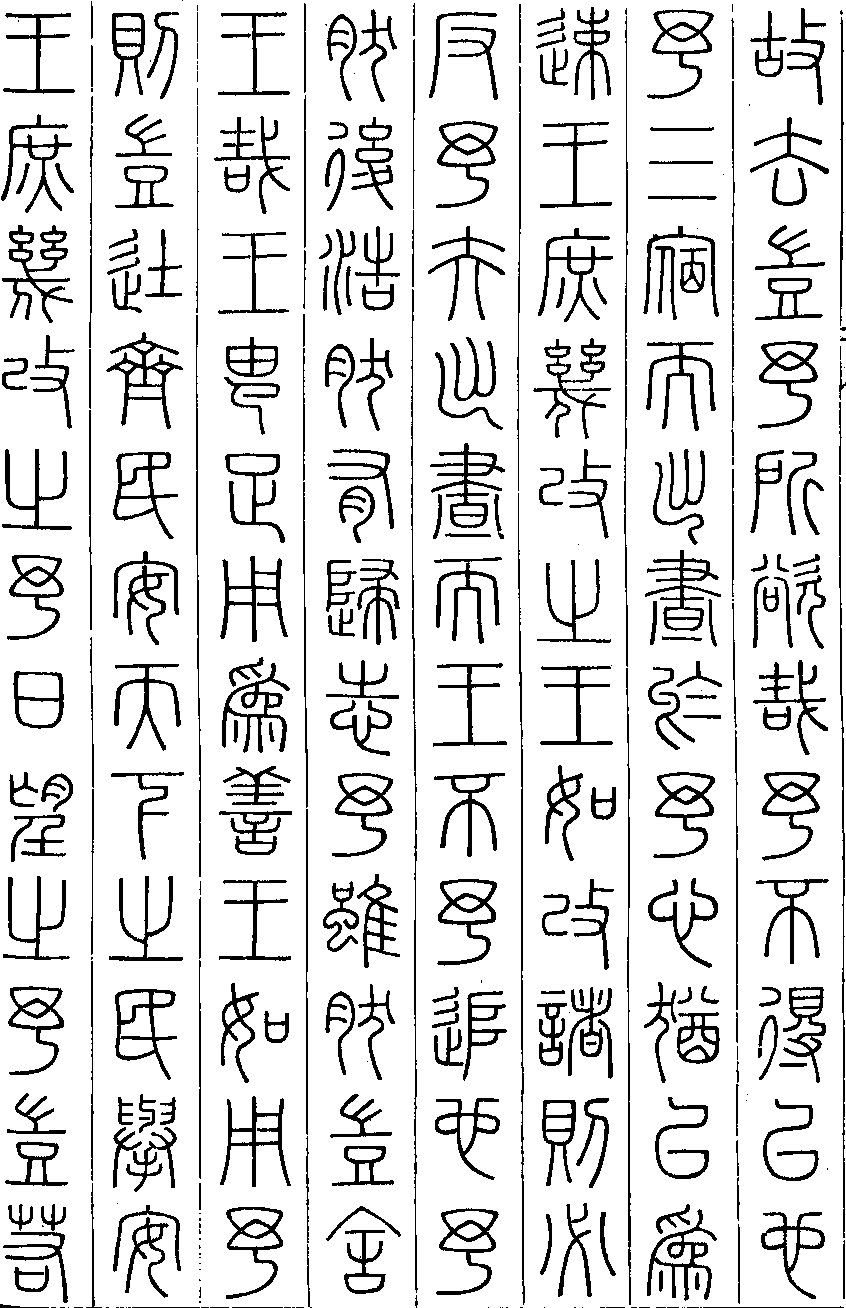 故去豈予所欲哉予不得已也
予三宿而出晝於予心猶以為
速王庶幾改之王如改諸則必
反予夫出晝而王不予追也予
然後浩然有歸志予雖然豈舍
王哉王由足用為善王如用予
則豈徒齊民安天下之民舉安
王庶幾改之予日望之予豈若